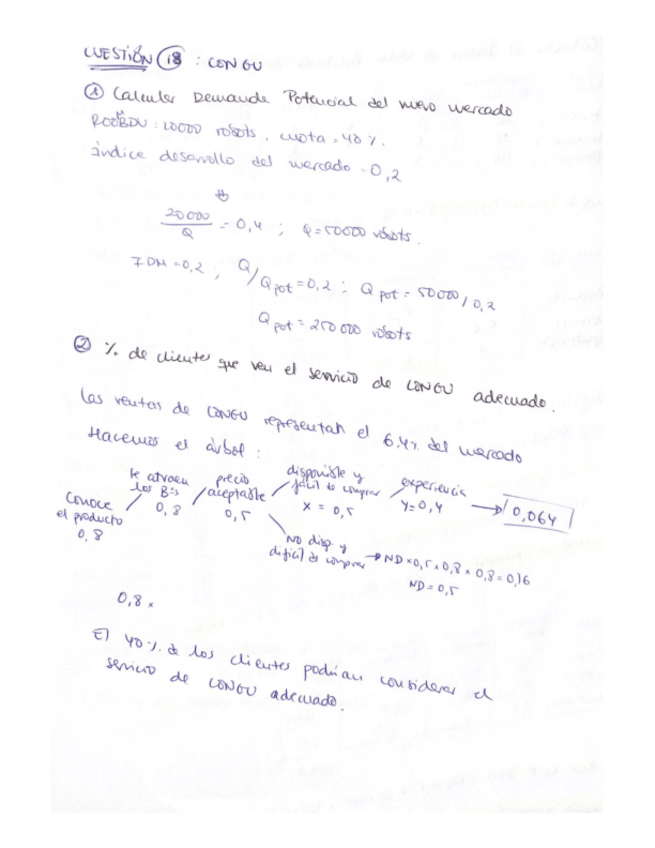 CUESTIÓN 18 : CONGU
① Calcular Demanda Potencial del nuevo mercado
ROOBDU : 20000 robots, cuota = 40 %.
índice desarrollo del mercado = 0,2
⇓
20000 / Q = 0,4 ; Q = 50000 robots.
IDM = 0,2 ; Q/Q pot = 0,2 ; Q pot = 50000/0,2
Q pot = 250 000 robots
② % de clientes que ven el servicio de CONGU adecuado.
Las ventas de CONGU representan el 6.4% del mercado
Hacemos el árbol :
Conoce el producto 0,8
te atraen los Bºs 0,8
precio aceptable 0,5
disponible y fácil de comprar X = 0,5
experiencia Y = 0,4 → 0,064
NO disp. y difícil de comprar → ND × 0,5 × 0,8 × 0,8 = 0,16
ND = 0,5
0,8 ×
El 40 % de los clientes podrían considerar el
servicio de CONGU adecuado.